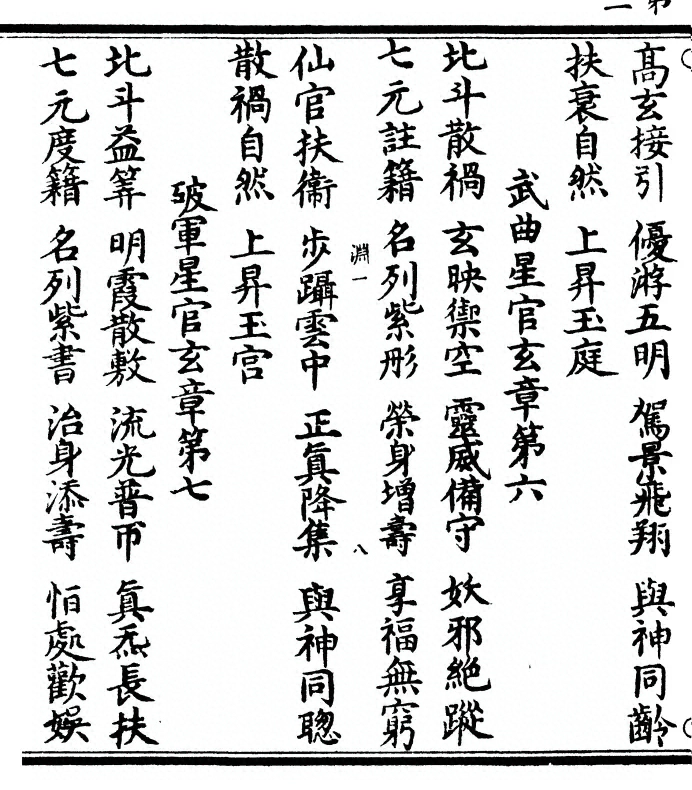 高玄接引 優游五明 駕景飛翔 與神同齡
扶衰自然 上昇玉庭
武曲星官玄章第六
北斗散禍 玄映御空 靈威備守 妖邪絶蹤
七元註籍 名列紫形 榮身增壽 享福無窮
淵一 八
仙官扶衞 步躡雲中 正眞降集 與神同聦
散禍自然 上昇玉宮
破軍星官玄章第七
北斗益筭 明霞散敷 流光普帀 眞炁長扶
七元度籍 名列紫書 治身添壽 怕處歡娛